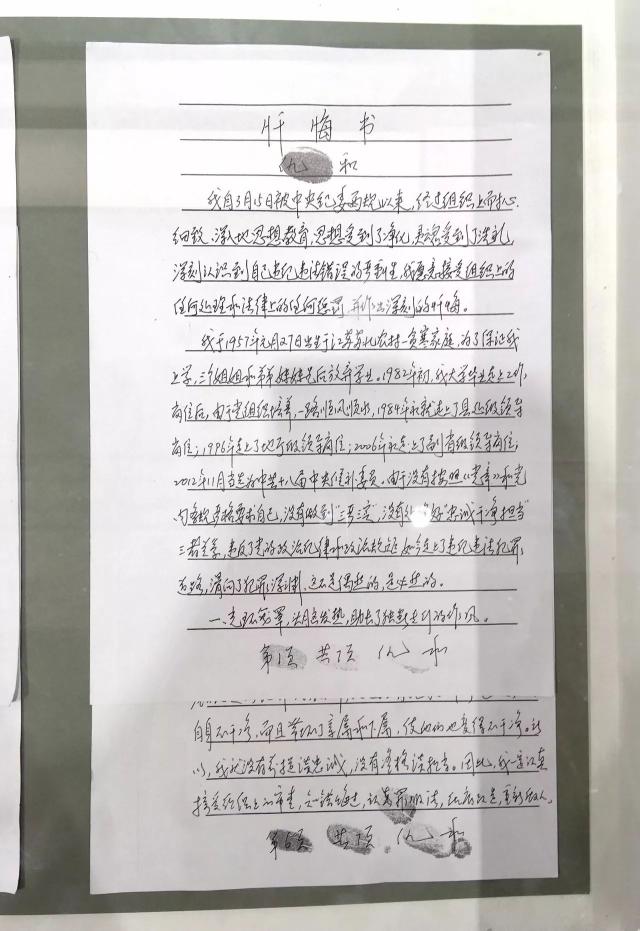 忏悔书
仇和
我自3月15日被中央纪委两规以来，经过组织上耐心、
细致、深入地思想教育，思想受到了净化，灵魂受到了洗礼，
深刻认识到自己违纪违法错误的严重性，我愿意接受组织上的
任何处理和法律上的任何惩罚，并作出深刻的忏悔。
我于1957年元月27日出生于江苏苏北农村一贫寒家庭，为了保证我
上学，三个姐姐和弟弟妹妹先后放弃学业。1982年初，我大学毕业走上工作
岗位后，由于党组织培养，一路顺风顺水，1984年底就走上了县处级领导
岗位；1996年走上了地厅级领导岗位；2006年初走上了副省级领导岗位；
2012年11月当选为中共十八届中央候补委员。由于没有按照《党章》和党
内法规严格要求自己，没有做到“三严三实”，没有处理好“忠诚干净担当”
三者关系，违反了党的政治纪律和政治规矩，如今走上了违纪违法犯罪
道路，滑向了犯罪深渊，这不是偶然的，是必然的。
一、光环笼罩，头脑发热，助长了独断专行的作风。
第1页 共7页 仇和
自身不干净，而且带坏了亲属和下属，使他们也变得不干净。所
以，我就没有资格谈忠诚，没有资格谈担当。因此，我一定认真
接受组织上的审查，知错悔过，认罪服法，彻底改造，重新做人。
第6页 共7页 仇和